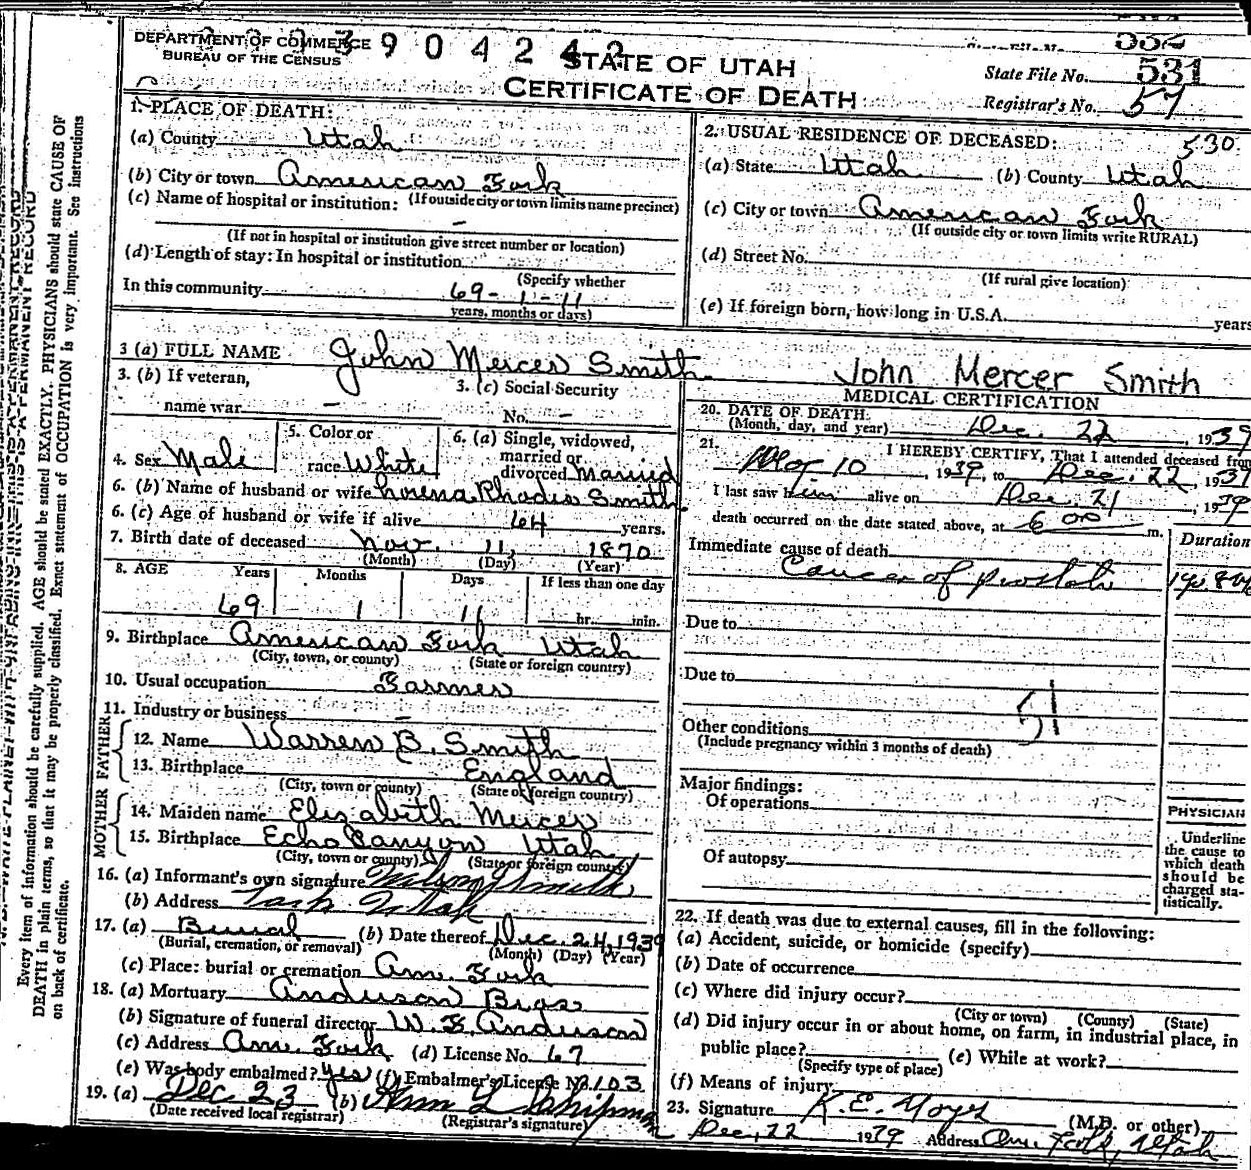 DEPARTMENT OF COMMERCE
BUREAU OF THE CENSUS
3 9 0 4 2 4 2
STATE OF UTAH
CERTIFICATE OF DEATH
State File No. 531
Registrar's No. 57
1. PLACE OF DEATH:
(a) County Utah
(b) City or town American Fork
(c) Name of hospital or institution: (If outside city or town limits name precinct)
–
(If not in hospital or institution give street number or location)
(d) Length of stay: In hospital or institution
(Specify whether
In this community 69-1-11
years, months or days)
2. USUAL RESIDENCE OF DECEASED: 530
(a) State Utah (b) County Utah
(c) City or town American Fork
(If outside city or town limits write RURAL)
(d) Street No.
(If rural give location)
(e) If foreign born, how long in U.S.A. years
3 (a) FULL NAME John Mercer Smith
3. (b) If veteran, name war –
3. (c) Social Security No. –
4. Sex Male
5. Color or race White
6. (a) Single, widowed, married or divorced Married
6. (b) Name of husband or wife Lorena Rhodes Smith
6. (c) Age of husband or wife if alive 64 years.
7. Birth date of deceased Nov. 11, 1870
(Month) (Day) (Year)
8. AGE Years Months Days If less than one day
69 1 11 hr. min.
9. Birthplace American Fork Utah
(City, town, or county) (State or foreign country)
10. Usual occupation Farmer
11. Industry or business –
FATHER
12. Name Warren B. Smith
13. Birthplace England
(City, town or county) (State or foreign country)
MOTHER
14. Maiden name Elizabeth Mercer
15. Birthplace Echo Canyon Utah
(City, town or county) (State or foreign country)
16. (a) Informant's own signature Smith
(b) Address Utah
17. (a) Burial (b) Date thereof Dec. 24, 1939
(Burial, cremation, or removal) (Month) (Day) (Year)
(c) Place: burial or cremation Am. Fork
18. (a) Mortuary Anderson Bros
(b) Signature of funeral director W. F. Anderson
(c) Address Am. Fork (d) License No. 67
(e) Was body embalmed? yes (f) Embalmer's License No. 103
19. (a) Dec 23 (b) Shipman
(Date received local registrar) (Registrar's signature)
John Mercer Smith
MEDICAL CERTIFICATION
20. DATE OF DEATH: Dec. 22, 1939
(Month, day, and year)
21. I HEREBY CERTIFY, That I attended deceased from
10, 1939, to Dec. 22, 1939
I last saw him alive on Dec. 21, 1939
death occurred on the date stated above, at 6 00 m.
Duration
Immediate cause of death
Cancer of prostate
Due to
Due to
51
Other conditions
(Include pregnancy within 3 months of death)
Major findings:
Of operations
Of autopsy
PHYSICIAN
Underline
the cause to
which death
should be
charged sta-
tistically.
22. If death was due to external causes, fill in the following:
(a) Accident, suicide, or homicide (specify)
(b) Date of occurrence
(c) Where did injury occur?
(City or town) (County) (State)
(d) Did injury occur in or about home, on farm, in industrial place, in
public place? (e) While at work?
(Specify type of place)
(f) Means of injury
23. Signature K. E. Noyes
(M.D. or other)
Dec, 22 1939 Address Am. Fork, Utah
Every item of information should be carefully supplied. AGE should be stated EXACTLY. PHYSICIANS should state CAUSE OF
DEATH in plain terms, so that it may be properly classified. Exact statement of OCCUPATION is very important. See instructions
on back of certificate.